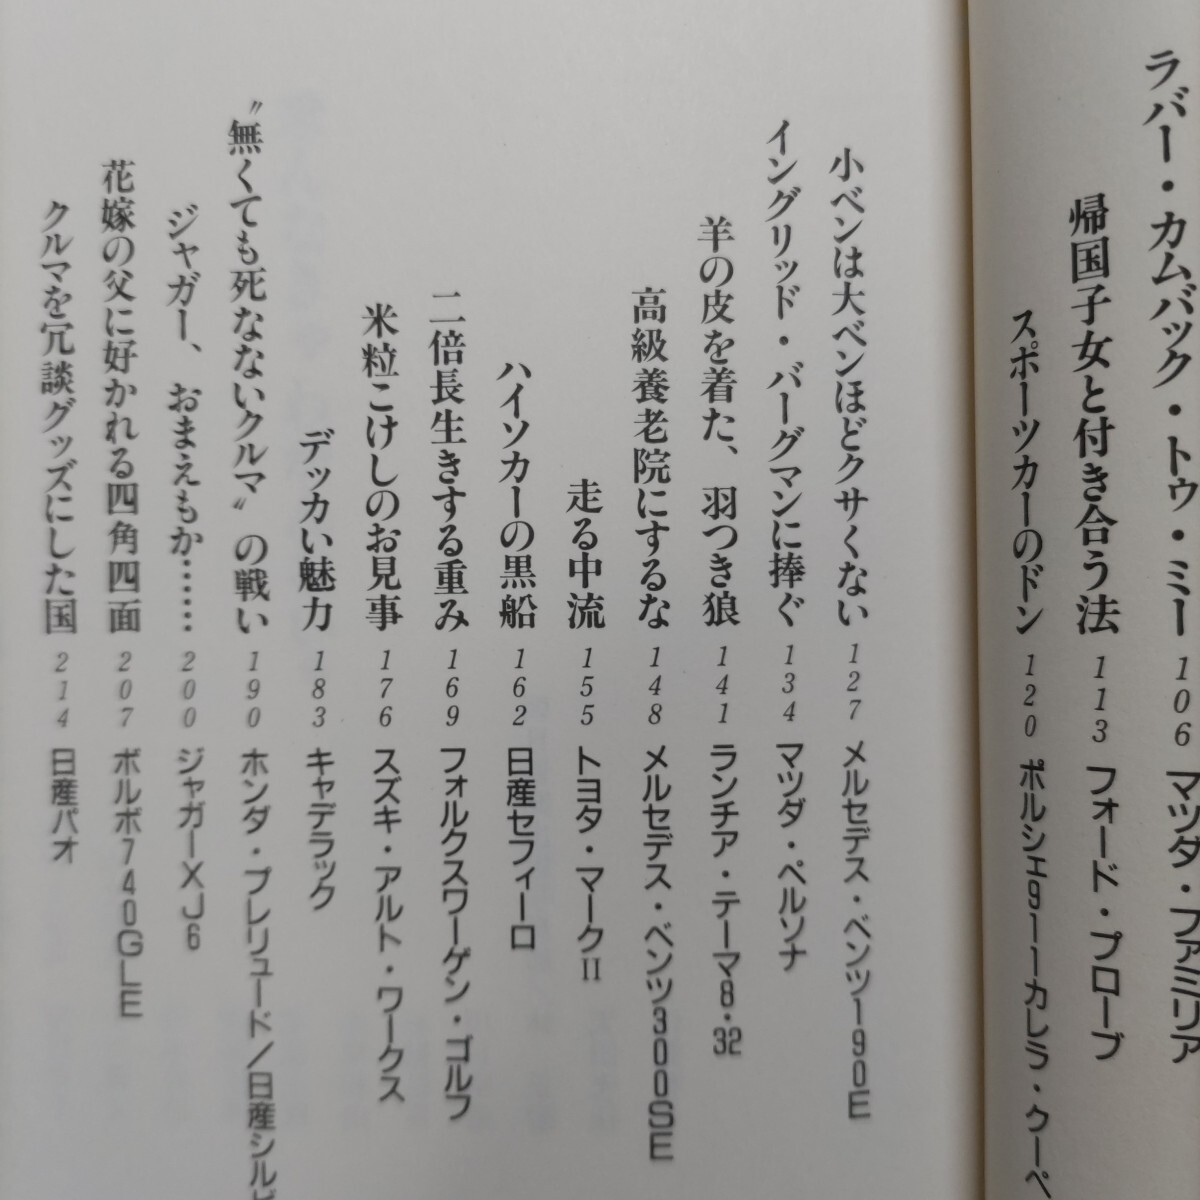 ラバー・カムバック・トゥ・ミー 106 マツダ・ファミリア
帰国子女と付き合う法 113 フォード・プローブ
スポーツカーのドン 120 ポルシェ911カレラ・クーペ
小ベンは大ベンほどクサくない 127 メルセデス・ベンツ190E
イングリッド・バーグマンに捧ぐ 134 マツダ・ペルソナ
羊の皮を着た、羽つき狼 141 ランチア・テーマ8・32
高級養老院にするな 148 メルセデス・ベンツ300SE
走る中流 155 トヨタ・マークII
ハイソカーの黒船 162 日産セフィーロ
二倍長生きする重み 169 フォルクスワーゲン・ゴルフ
米粒こけしのお見事 176 スズキ・アルト・ワークス
デッカい魅力 183 キャデラック
〝無くても死なないクルマ〟の戦い 190 ホンダ・プレリュード/日産シルビ
ジャガー、おまえもか…… 200 ジャガーXJ6
花嫁の父に好かれる四角四面 207 ボルボ740GLE
クルマを冗談グッズにした国 214 日産パオ